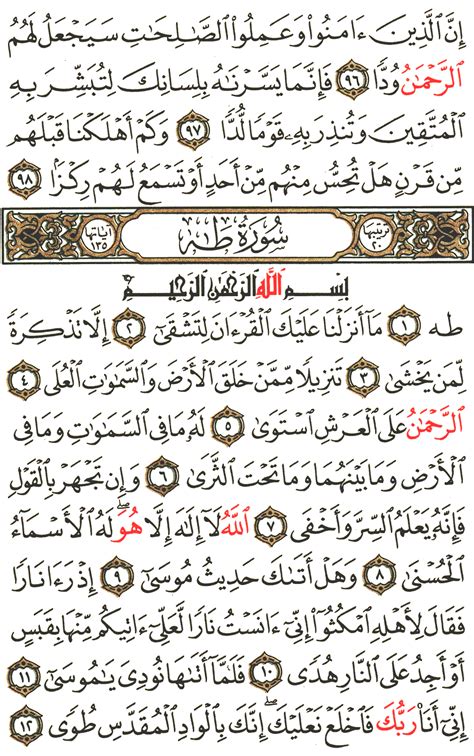 إِنَّ ٱلَّذِينَ ءَامَنُواْ وَعَمِلُواْ ٱلصَّـٰلِحَـٰتِ سَيَجْعَلُ لَهُمُ
ٱلرَّحْمَـٰنُ وُدًّا ٩٦ فَإِنَّمَا يَسَّرْنَـٰهُ بِلِسَانِكَ لِتُبَشِّرَ بِهِ
ٱلْمُتَّقِينَ وَتُنذِرَ بِهِۦ قَوْمًا لُّدًّا ٩٧ وَكَمْ أَهْلَكْنَا قَبْلَهُم
مِّن قَرْنٍ هَلْ تُحِسُّ مِنْهُم مِّنْ أَحَدٍ أَوْ تَسْمَعُ لَهُمْ رِكْزًۢا ٩٨
ترتيبها ٢٠ سُورَةُ طه آياتها ١٣٥
بِسْمِ ٱللَّهِ ٱلرَّحْمَـٰنِ ٱلرَّحِيمِ
طه ١ مَآ أَنزَلْنَا عَلَيْكَ ٱلْقُرْءَانَ لِتَشْقَىٰٓ ٢ إِلَّا تَذْكِرَةً
لِّمَن يَخْشَىٰ ٣ تَنزِيلًا مِّمَّنْ خَلَقَ ٱلْأَرْضَ وَٱلسَّمَـٰوَٰتِ ٱلْعُلَى ٤
ٱلرَّحْمَـٰنُ عَلَى ٱلْعَرْشِ ٱسْتَوَىٰ ٥ لَهُۥ مَا فِى ٱلسَّمَـٰوَٰتِ وَمَا فِى
ٱلْأَرْضِ وَمَا بَيْنَهُمَا وَمَا تَحْتَ ٱلثَّرَىٰ ٦ وَإِن تَجْهَرْ بِٱلْقَوْلِ
فَإِنَّهُۥ يَعْلَمُ ٱلسِّرَّ وَأَخْفَى ٧ ٱللَّهُ لَآ إِلَـٰهَ إِلَّا هُوَ ۖ لَهُ ٱلْأَسْمَآءُ
ٱلْحُسْنَىٰ ٨ وَهَلْ أَتَىٰكَ حَدِيثُ مُوسَىٰٓ ٩ إِذْ رَءَا نَارًا
فَقَالَ لِأَهْلِهِ ٱمْكُثُوٓاْ إِنِّىٓ ءَانَسْتُ نَارًا لَّعَلِّىٓ ءَاتِيكُم مِّنْهَا بِقَبَسٍ
أَوْ أَجِدُ عَلَى ٱلنَّارِ هُدًى ١٠ فَلَمَّآ أَتَىٰهَا نُودِىَ يَـٰمُوسَىٰٓ ١١
إِنِّىٓ أَنَا۠ رَبُّكَ فَٱخْلَعْ نَعْلَيْكَ ۖ إِنَّكَ بِٱلْوَادِ ٱلْمُقَدَّسِ طُوًى ١٢